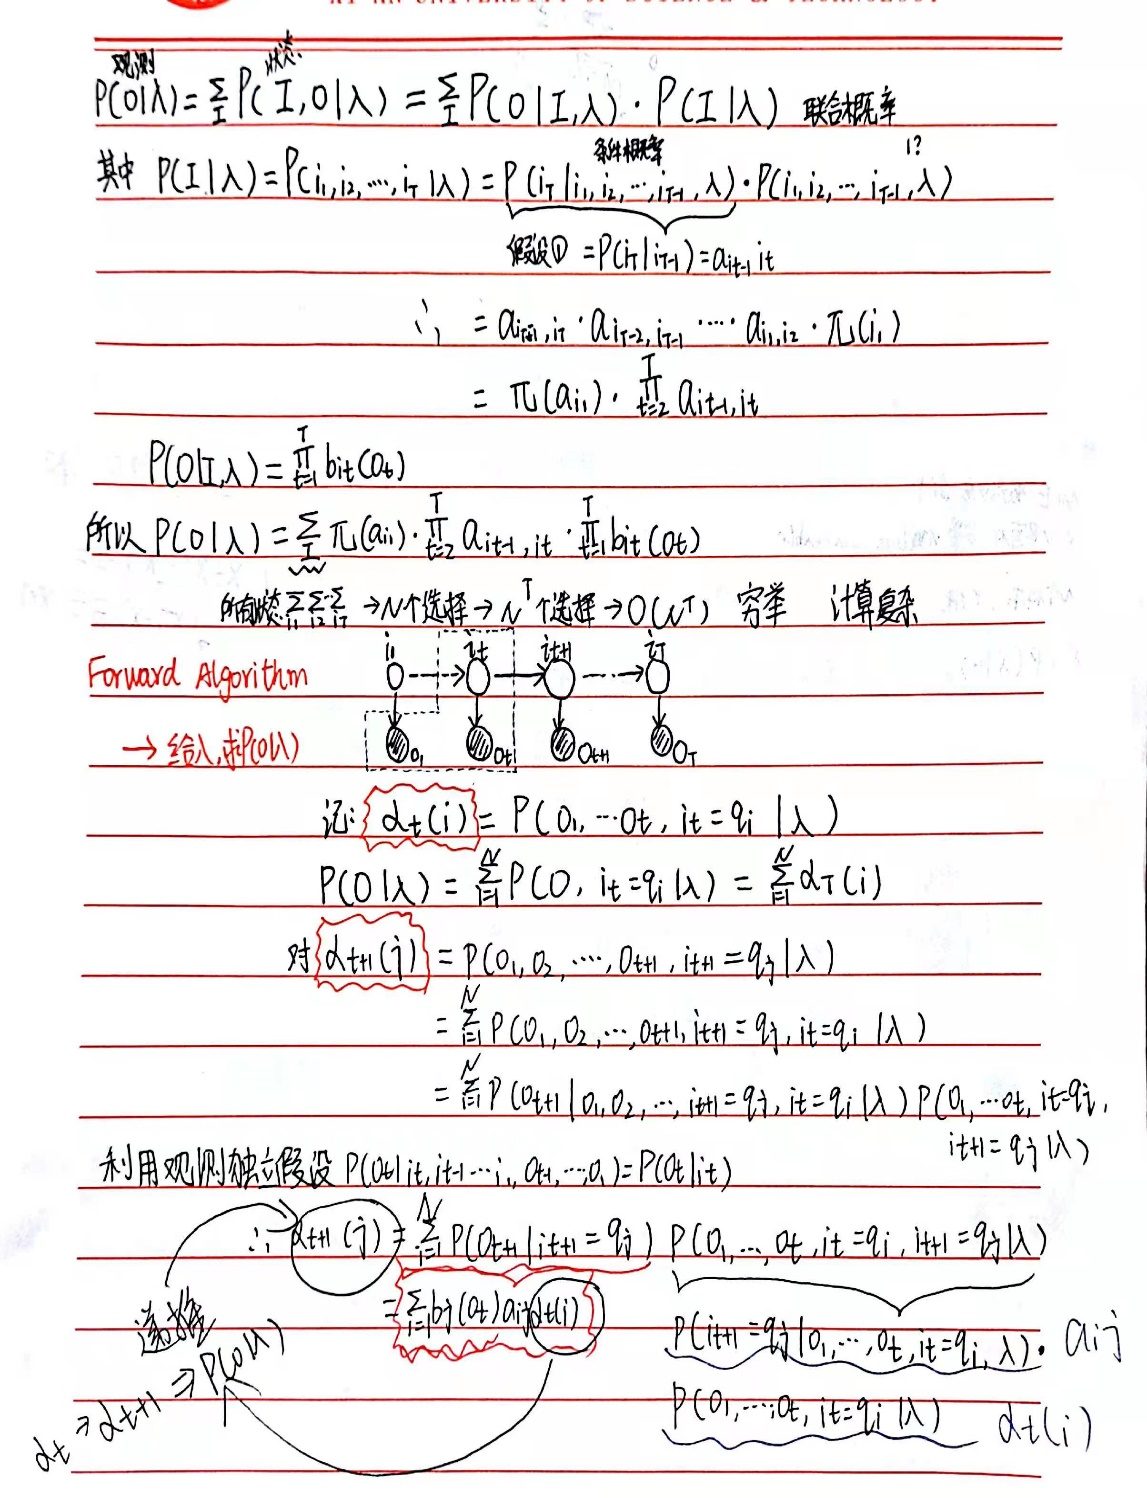 XI'AN UNIVERSITY OF SCIENCE & TECHNOLOGY
观测 状态
P(O|λ) = Σ_I P(I,O|λ) = Σ_I P(O|I,λ)·P(I|λ) 联合概率
条件概率 1?
其中 P(I|λ) = P(i₁,i₂,…,i_T|λ) = P(i_T|i₁,i₂,…,i_{T-1},λ)·P(i₁,i₂,…,i_{T-1},λ)
假设① = P(i_T|i_{T-1}) = a_{it-1 it}
∴ = a_{iT-1,iT}·a_{iT-2,iT-1}·…·a_{i1,i2}·π(i₁)
= π(a_{i1})·∏_{t=2}^T a_{it-1,it}
P(O|I,λ) = ∏_{t=1}^T b_{it}(O_t)
所以 P(O|λ) = Σ_I π(a_{i1})·∏_{t=2}^T a_{it-1,it}·∏_{t=1}^T b_{it}(O_t)
所有状态 Σ_{i1}Σ_{i2}…Σ_{iT} → N个选择 → N^T个选择 → O(N^T) 穷举 计算复杂
i₁ i_t i_{t+1} i_T
Forward Algorithm
→ 给λ,求P(O|λ) O₁ O_t O_{t+1} O_T
记: α_t(i) = P(O₁,…O_t, i_t=q_i|λ)
P(O|λ) = Σ_{i=1}^N P(O, i_t=q_i|λ) = Σ_{i=1}^N α_T(i)
对 α_{t+1}(j) = P(O₁,O₂,…,O_{t+1}, i_{t+1}=q_j|λ)
= Σ_{i=1}^N P(O₁,O₂,…,O_{t+1}, i_{t+1}=q_j, i_t=q_i|λ)
= Σ_{i=1}^N P(O_{t+1}|O₁,O₂,…, i_{t+1}=q_j, i_t=q_i|λ) P(O₁,…O_t, i_t=q_i,
i_{t+1}=q_j|λ)
利用观测独立假设 P(O_t|i_t,i_{t-1}…i₁,O_{t-1},…,O₁) = P(O_t|i_t)
∴ α_{t+1}(j) = Σ_{i=1}^N P(O_{t+1}|i_{t+1}=q_j) P(O₁,…,O_t, i_t=q_i, i_{t+1}=q_j|λ)
= Σ_{i=1} b_j(O_t) a_{ij} α_t(i)
P(i_{t+1}=q_j|O₁,…,O_t, i_t=q_i, λ)· a_{ij}
P(O₁,…,O_t, i_t=q_i|λ) α_t(i)
递推
α_t ⇒ α_{t+1} ⇒ P(O|λ)